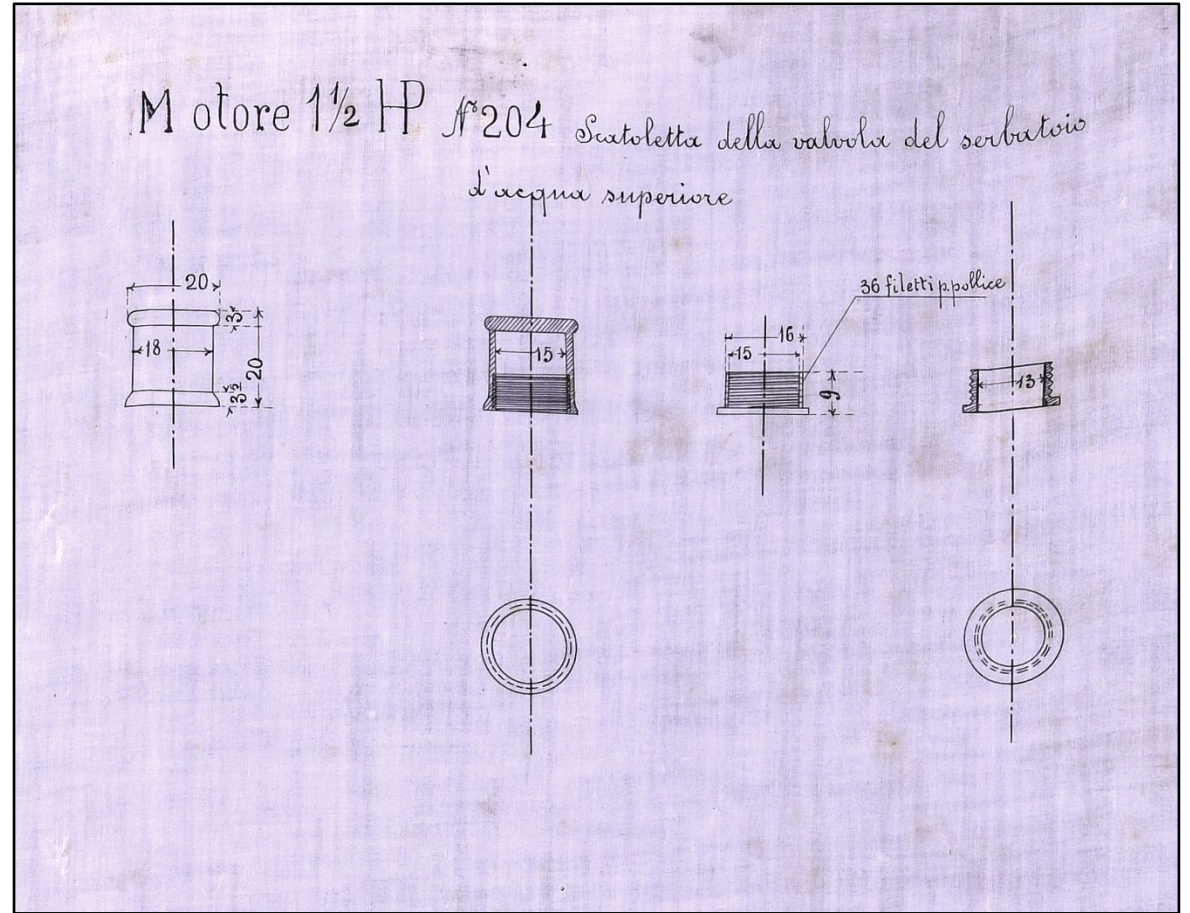 Motore 1½ HP Nº 204 Scatoletta della valvola del serbatoio
d'acqua superiore
20
3
18
20
3½
15
36 filetti p. pollice
16
15
9
13